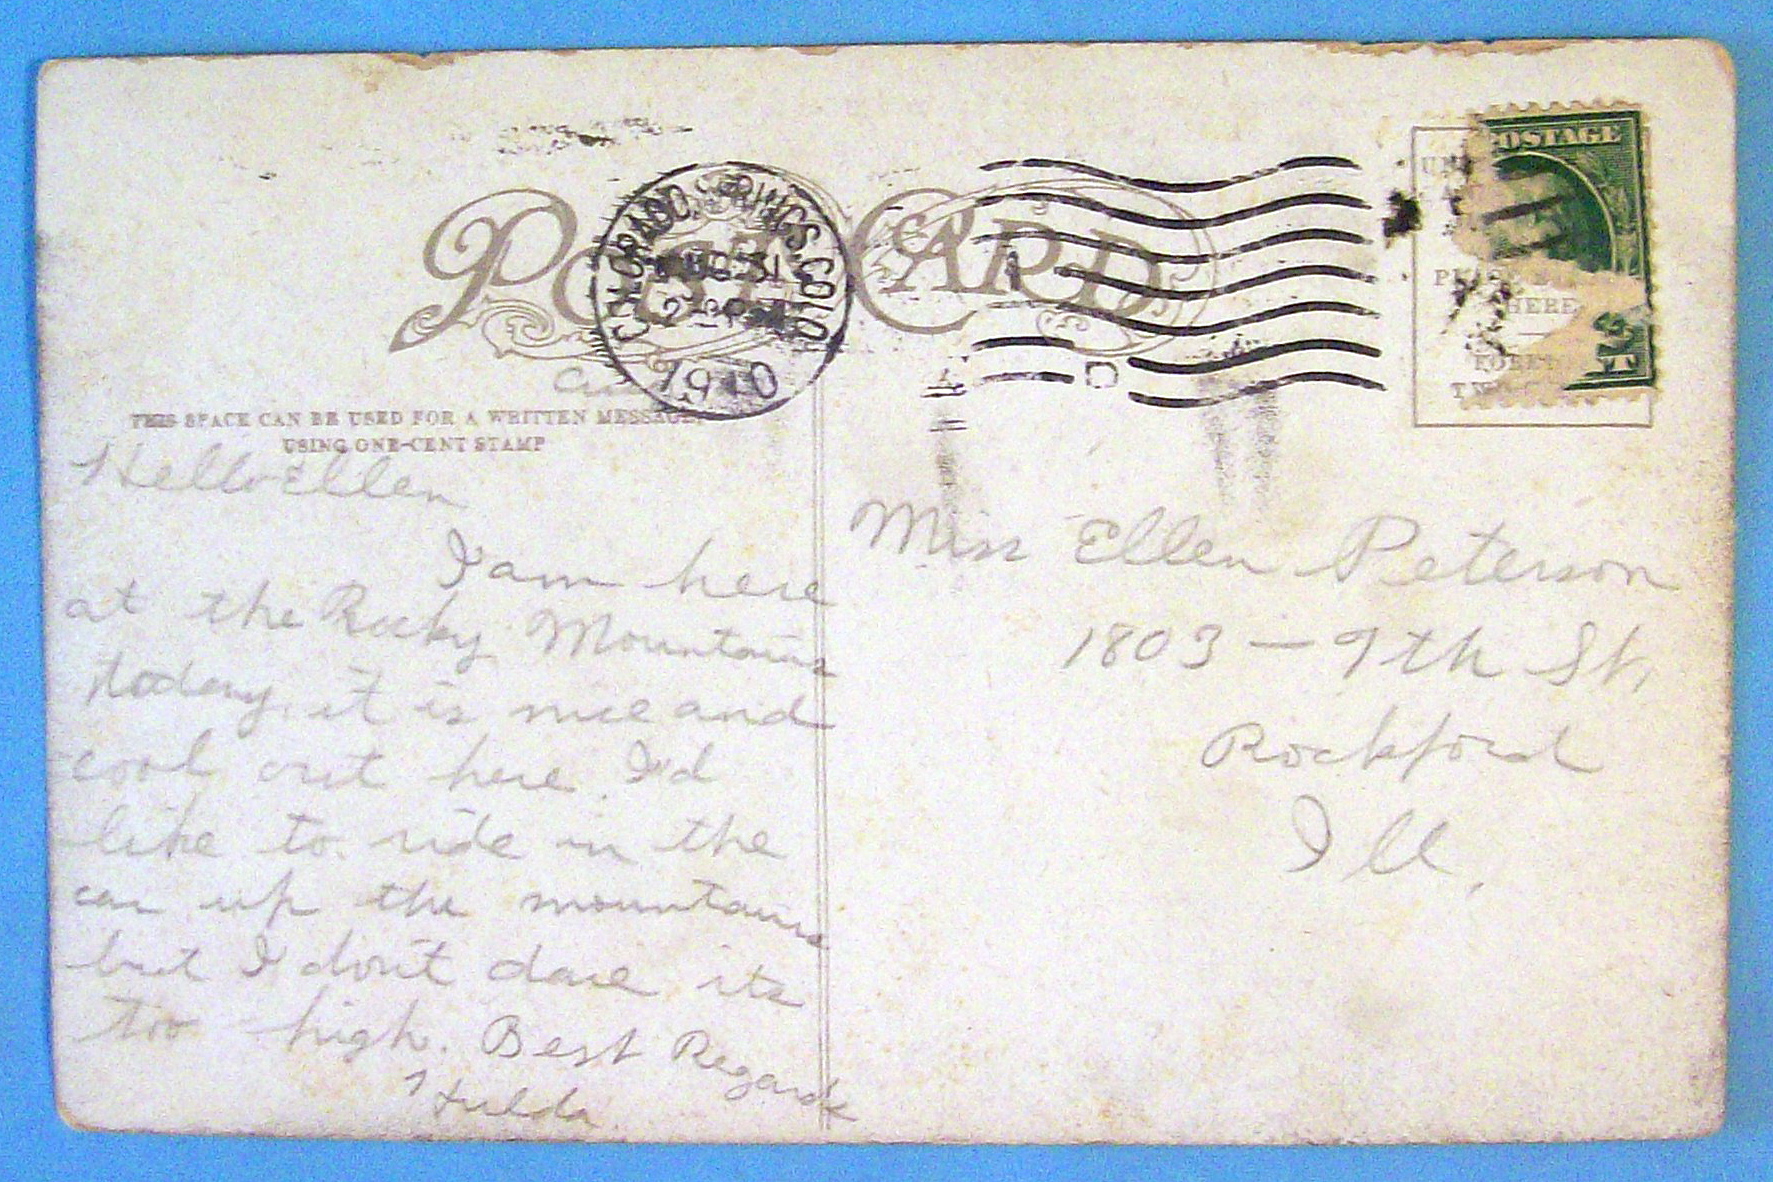 POST CARD
COLORADO SPRINGS, COLO.
1910
POSTAGE
HERE
THIS SPACE CAN BE USED FOR A WRITTEN MESSAGE,
USING ONE-CENT STAMP
Hello Ellen
I am here
at the Rocky Mountains
today. it is nice and
cool out here I'd
like to ride in the
car up the mountains
but I don't dare its
too high. Best Regards
Hulda
Miss Ellen Peterson
1803 - 9th St,
Rockford
Ill.